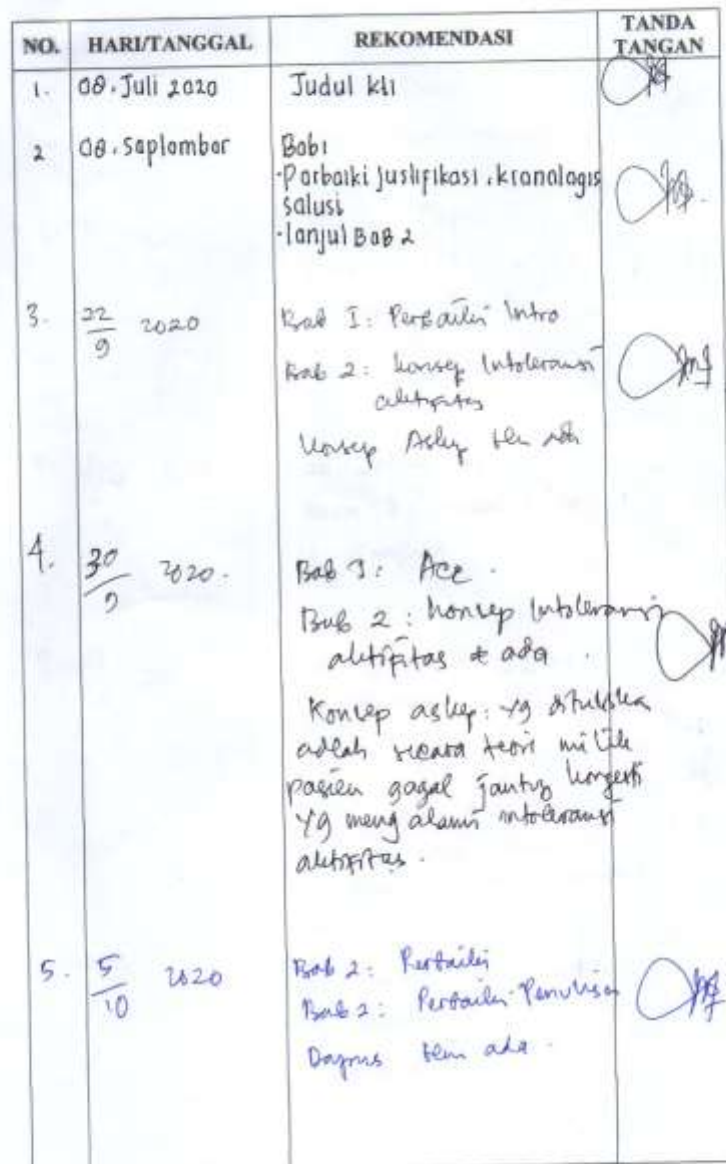 NO. HARI/TANGGAL REKOMENDASI TANDA TANGAN
1. 08. Juli 2020 Judul kti
2 08. Saplambar Bab1
- Parbaiki Justifikasi. kronalagis
salusi
- lanjut Bab 2
3. 22/9 2020 Bab I: Perbaiki Intro
Bab 2: konsep Intoleransi
aktifitas
Konsep Askep blm ada
4. 30/9 2020. Bab 1: Acc.
Bab 2: konsep Intoleransi
aktifitas ada.
Konsep askep: yg dituliska
adlah secara teori milik
pasien gagal jantug kongesti
yg meng alami intoleransi
aktifitas.
5. 5/10 2020 Bab 2: Perbaiki
Bab 2: Perbaiki Penulisan
Dapus blm ada.